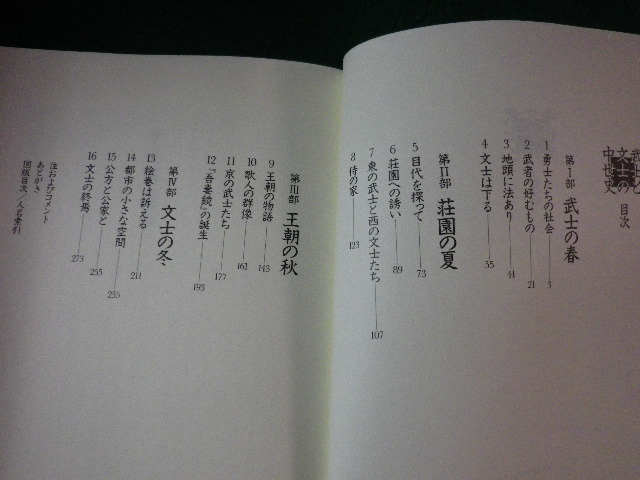 武士と
文士の
中世史
目次
第Ⅰ部 武士の春
1 勇士たちの社会 3
2 武者の好むもの 21
3 地頭に法あり 41
4 文士は下る 55
第Ⅱ部 荘園の夏
5 目代を探って 73
6 荘園への誘い 89
7 東の武士と西の文士たち 107
8 侍の家 123
第Ⅲ部 王朝の秋
9 王朝の物語 143
10 歌人の群像 161
11 京の武士たち 177
12 『吾妻鏡』の誕生 193
第Ⅳ部 文士の冬
13 絵巻は訴える 211
14 都市の小さな空間 235
15 公方と公家と 255
16 文士の終焉 273
注およびコメント
あとがき
図版目次/人名索引